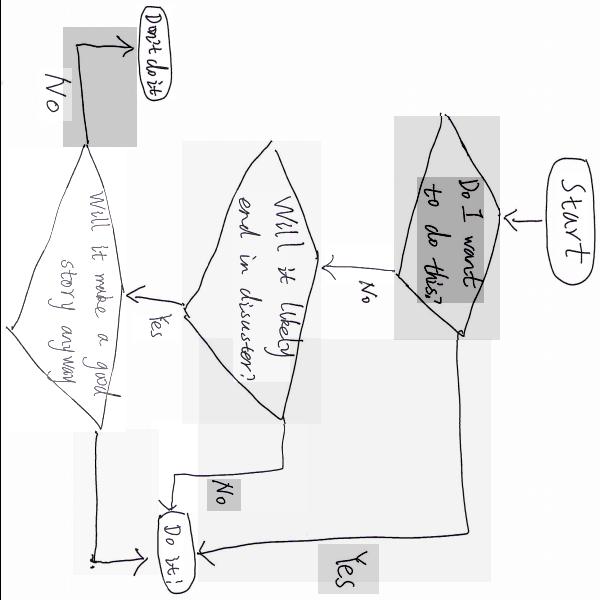 Start
Do I want
to do this?
Yes
No
Will it likely
end in disaster?
No
Yes
Will it make a good
story anyway
No
Don't do it
Do it!